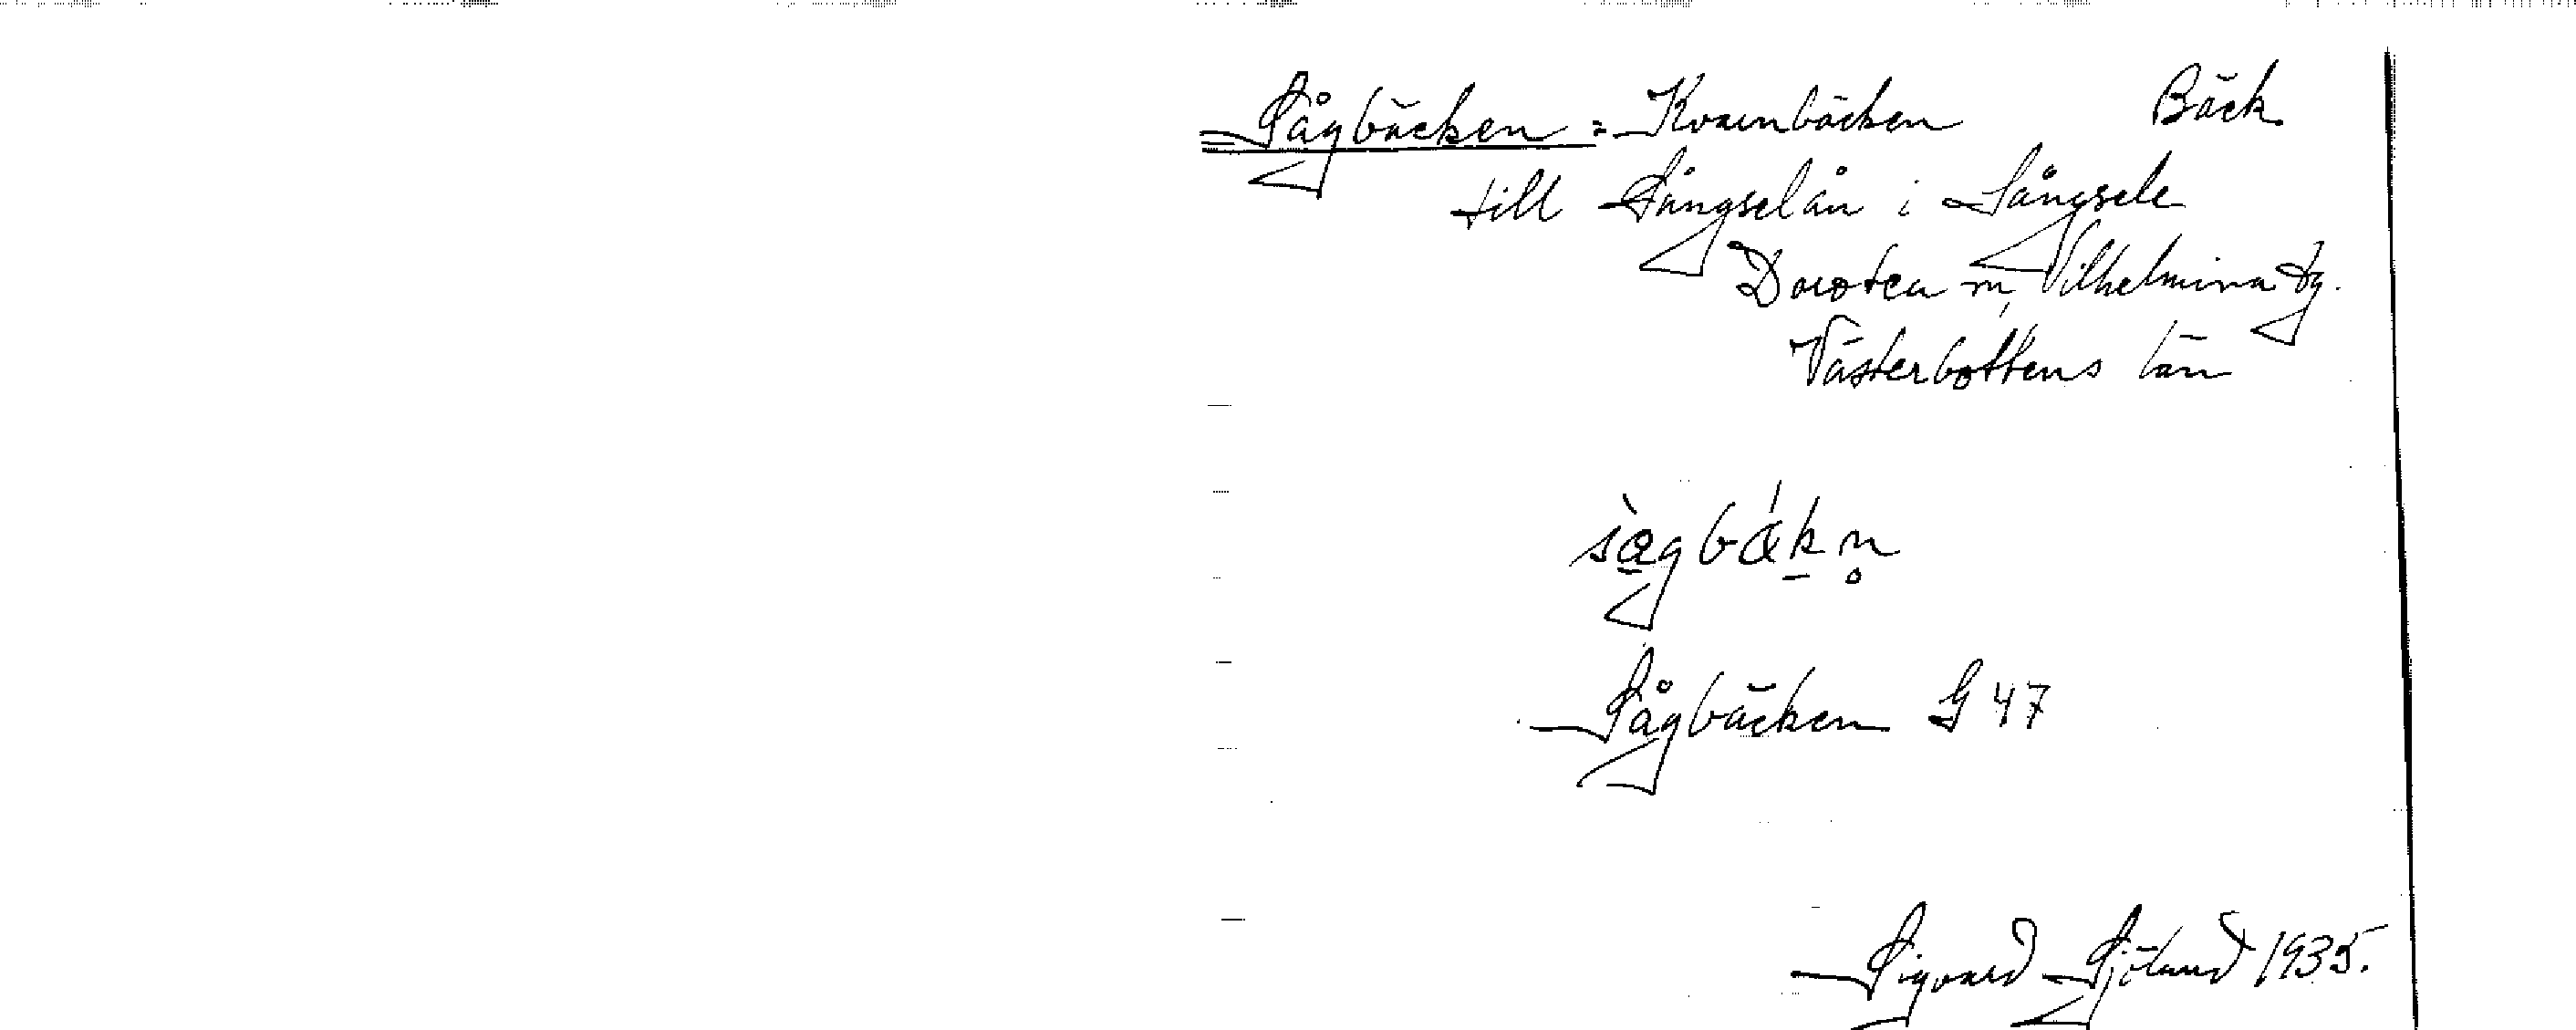 Sågbäcken = Kvarnbäcken Bäck
till Långselån i Långsele
Dorotea sn, Vilhelmina tg.
Västerbottens län
sàgbák̠n̥
Sågbäcken G 47
Sigvard Sjölund 1935.